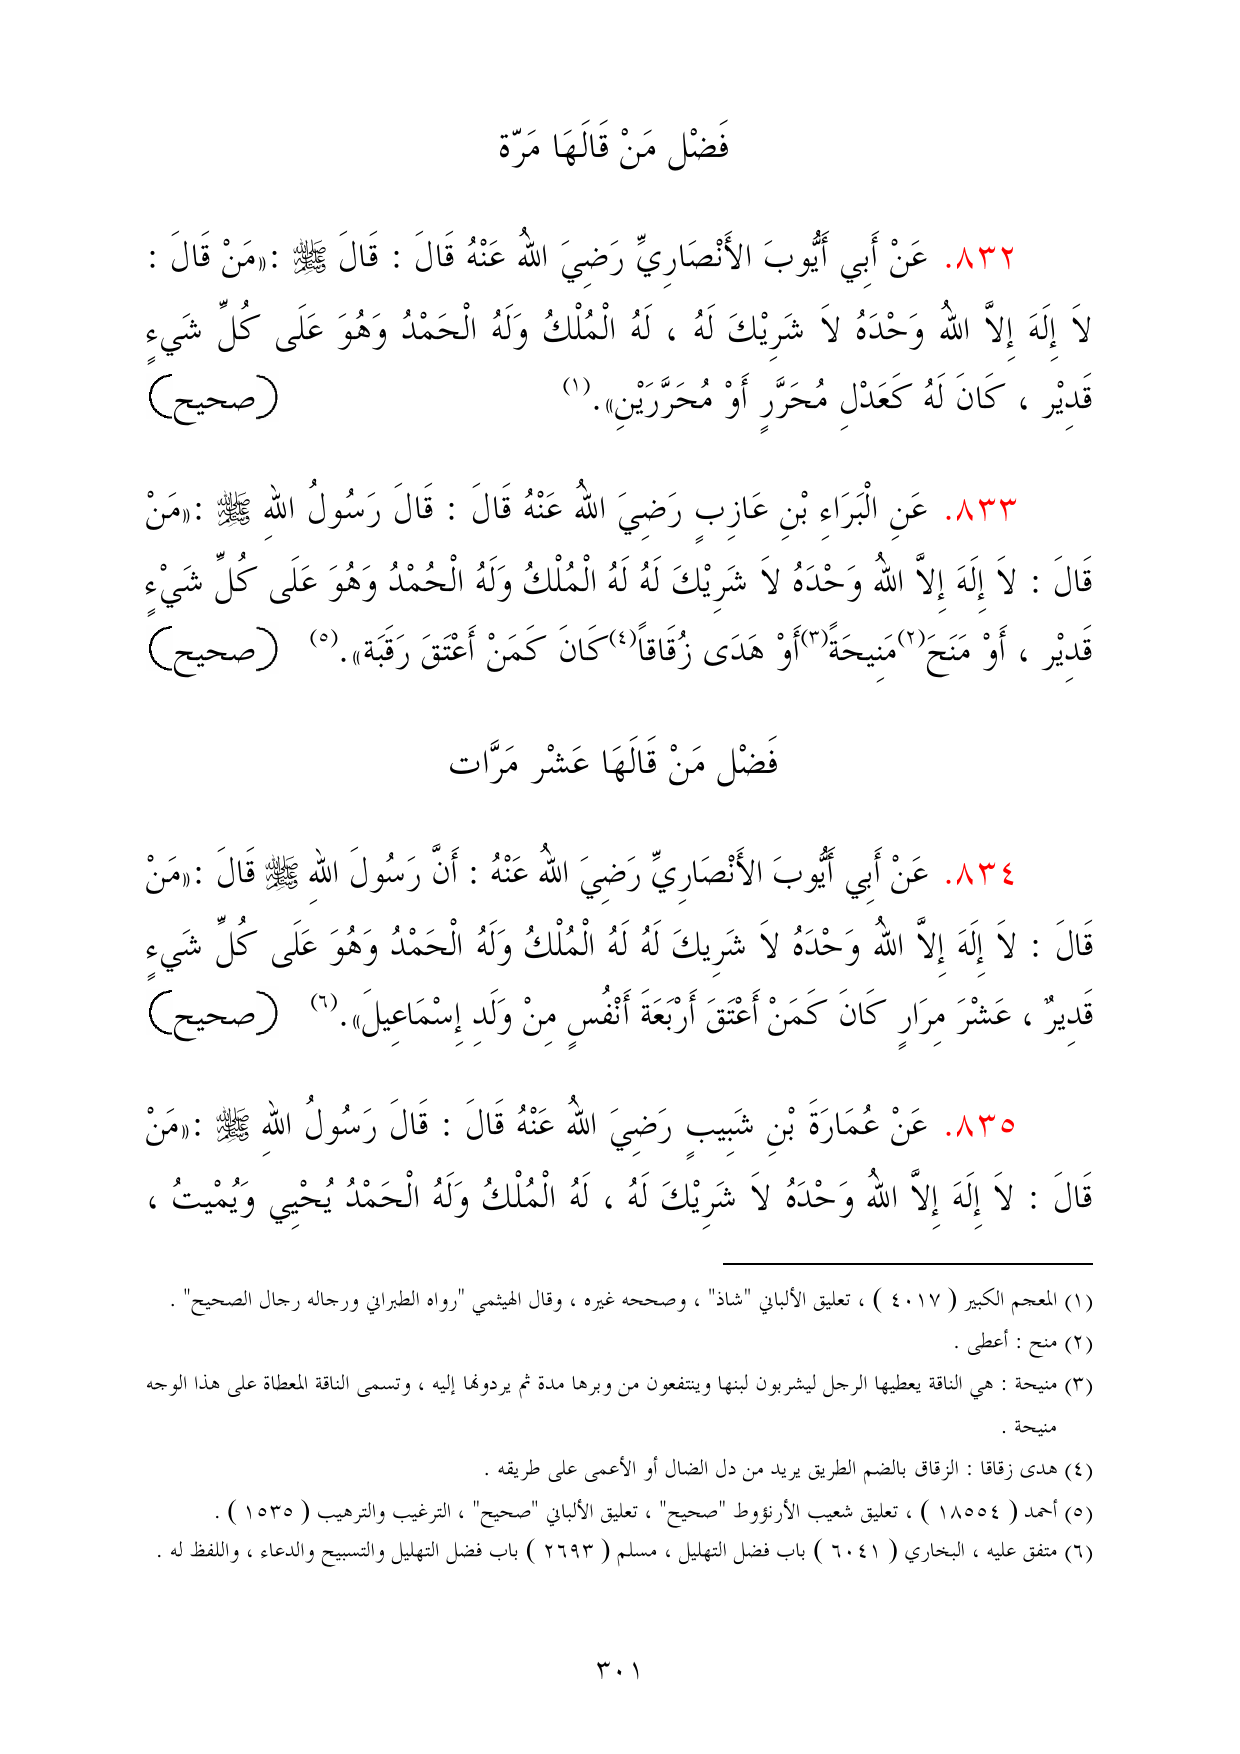 فَضْل مَنْ قَالَهَا مَرّة
٨٣٢. عَنْ أَبِي أَيُّوبَ الأَنْصَارِيِّ رَضِيَ اللهُ عَنْهُ قَالَ : قَالَ ﷺ :«مَنْ قَالَ :
لاَ إِلَهَ إِلاَّ اللهُ وَحْدَهُ لاَ شَرِيْكَ لَهُ ، لَهُ الْمُلْكُ وَلَهُ الْحَمْدُ وَهُوَ عَلَى كُلِّ شَيءٍ
قَدِيْر ، كَانَ لَهُ كَعَدْلِ مُحَرَّرٍ أَوْ مُحَرَّرَيْنِ».(١) (صحيح)
٨٣٣. عَنِ الْبَرَاءِ بْنِ عَازِبٍ رَضِيَ اللهُ عَنْهُ قَالَ : قَالَ رَسُولُ اللهِ ﷺ :«مَنْ
قَالَ : لاَ إِلَهَ إِلاَّ اللهُ وَحْدَهُ لاَ شَرِيْكَ لَهُ لَهُ الْمُلْكُ وَلَهُ الْحُمْدُ وَهُوَ عَلَى كُلِّ شَيْءٍ
قَدِيْر ، أَوْ مَنَحَ(٢)مَنِيحَةً(٣)أَوْ هَدَى زُقَاقاً(٤)كَانَ كَمَنْ أَعْتَقَ رَقَبَة».(٥) (صحيح)
فَضْل مَنْ قَالَهَا عَشْر مَرَّات
٨٣٤. عَنْ أَبِي أَيُّوبَ الأَنْصَارِيِّ رَضِيَ اللهُ عَنْهُ : أَنَّ رَسُولَ اللهِ ﷺ قَالَ :«مَنْ
قَالَ : لاَ إِلَهَ إِلاَّ اللهُ وَحْدَهُ لاَ شَرِيكَ لَهُ لَهُ الْمُلْكُ وَلَهُ الْحَمْدُ وَهُوَ عَلَى كُلِّ شَيءٍ
قَدِيرٌ ، عَشْرَ مِرَارٍ كَانَ كَمَنْ أَعْتَقَ أَرْبَعَةَ أَنْفُسٍ مِنْ وَلَدِ إِسْمَاعِيلَ».(٦) (صحيح)
٨٣٥. عَنْ عُمَارَةَ بْنِ شَبِيبٍ رَضِيَ اللهُ عَنْهُ قَالَ : قَالَ رَسُولُ اللهِ ﷺ :«مَنْ
قَالَ : لاَ إِلَهَ إِلاَّ اللهُ وَحْدَهُ لاَ شَرِيْكَ لَهُ ، لَهُ الْمُلْكُ وَلَهُ الْحَمْدُ يُحْيِي وَيُمْيتُ ،
(١) المعجم الكبير ( ٤٠١٧ ) ، تعليق الألباني "شاذ" ، وصححه غيره ، وقال الهيثمي "رواه الطبراني ورجاله رجال الصحيح" .
(٢) منح : أعطى .
(٣) منيحة : هي الناقة يعطيها الرجل ليشربون لبنها وينتفعون من وبرها مدة ثم يردونها إليه ، وتسمى الناقة المعطاة على هذا الوجه
منيحة .
(٤) هدى زقاقا : الزقاق بالضم الطريق يريد من دل الضال أو الأعمى على طريقه .
(٥) أحمد ( ١٨٥٥٤ ) ، تعليق شعيب الأرنؤوط "صحيح" ، تعليق الألباني "صحيح" ، الترغيب والترهيب ( ١٥٣٥ ) .
(٦) متفق عليه ، البخاري ( ٦٠٤١ ) باب فضل التهليل ، مسلم ( ٢٦٩٣ ) باب فضل التهليل والتسبيح والدعاء ، واللفظ له .
٣٠١